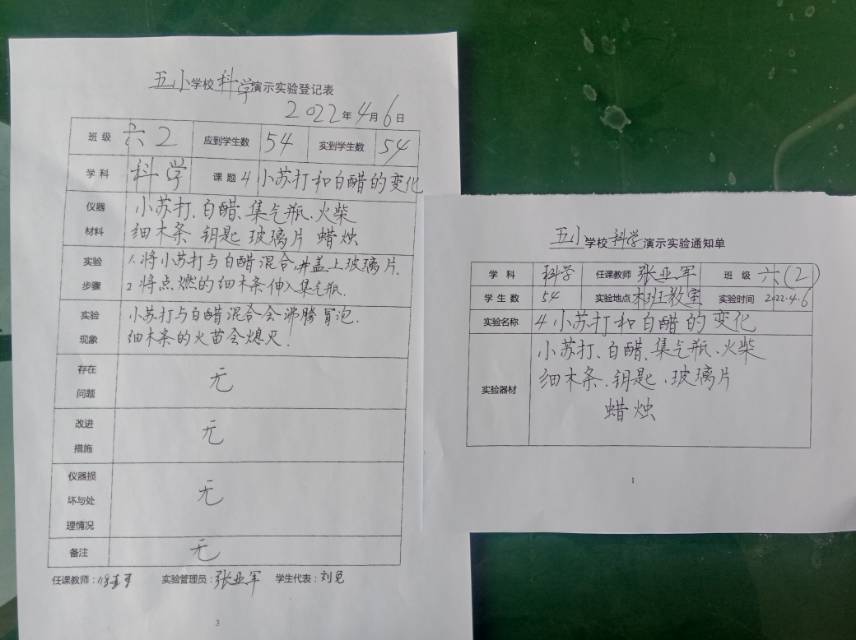 五小学校科学演示实验登记表
2022年4月6日
班级 六2 应到学生数 54 实到学生数 54
学科 科学 课题 4 小苏打和白醋的变化
仪器材料 小苏打、白醋、集气瓶、火柴
细木条 钥匙 玻璃片 蜡烛
实验步骤 1.将小苏打与白醋混合,并盖上玻璃片.
2 将点燃的细木条伸入集气瓶.
实验现象 小苏打与白醋混合会沸腾冒泡.
细木条的火苗会熄灭.
存在问题 无
改进措施 无
仪器损坏与处理情况 无
备注 无
任课教师: 实验管理员:张亚军 学生代表:刘
3
五小学校科学演示实验通知单
学科 科学 任课教师 张亚军 班级 六(2)
学生数 54 实验地点 本班教室 实验时间 2022.4.6
实验名称 4 小苏打和白醋的变化
实验器材 小苏打、白醋、集气瓶、火柴
细木条、钥匙、玻璃片
蜡烛
1